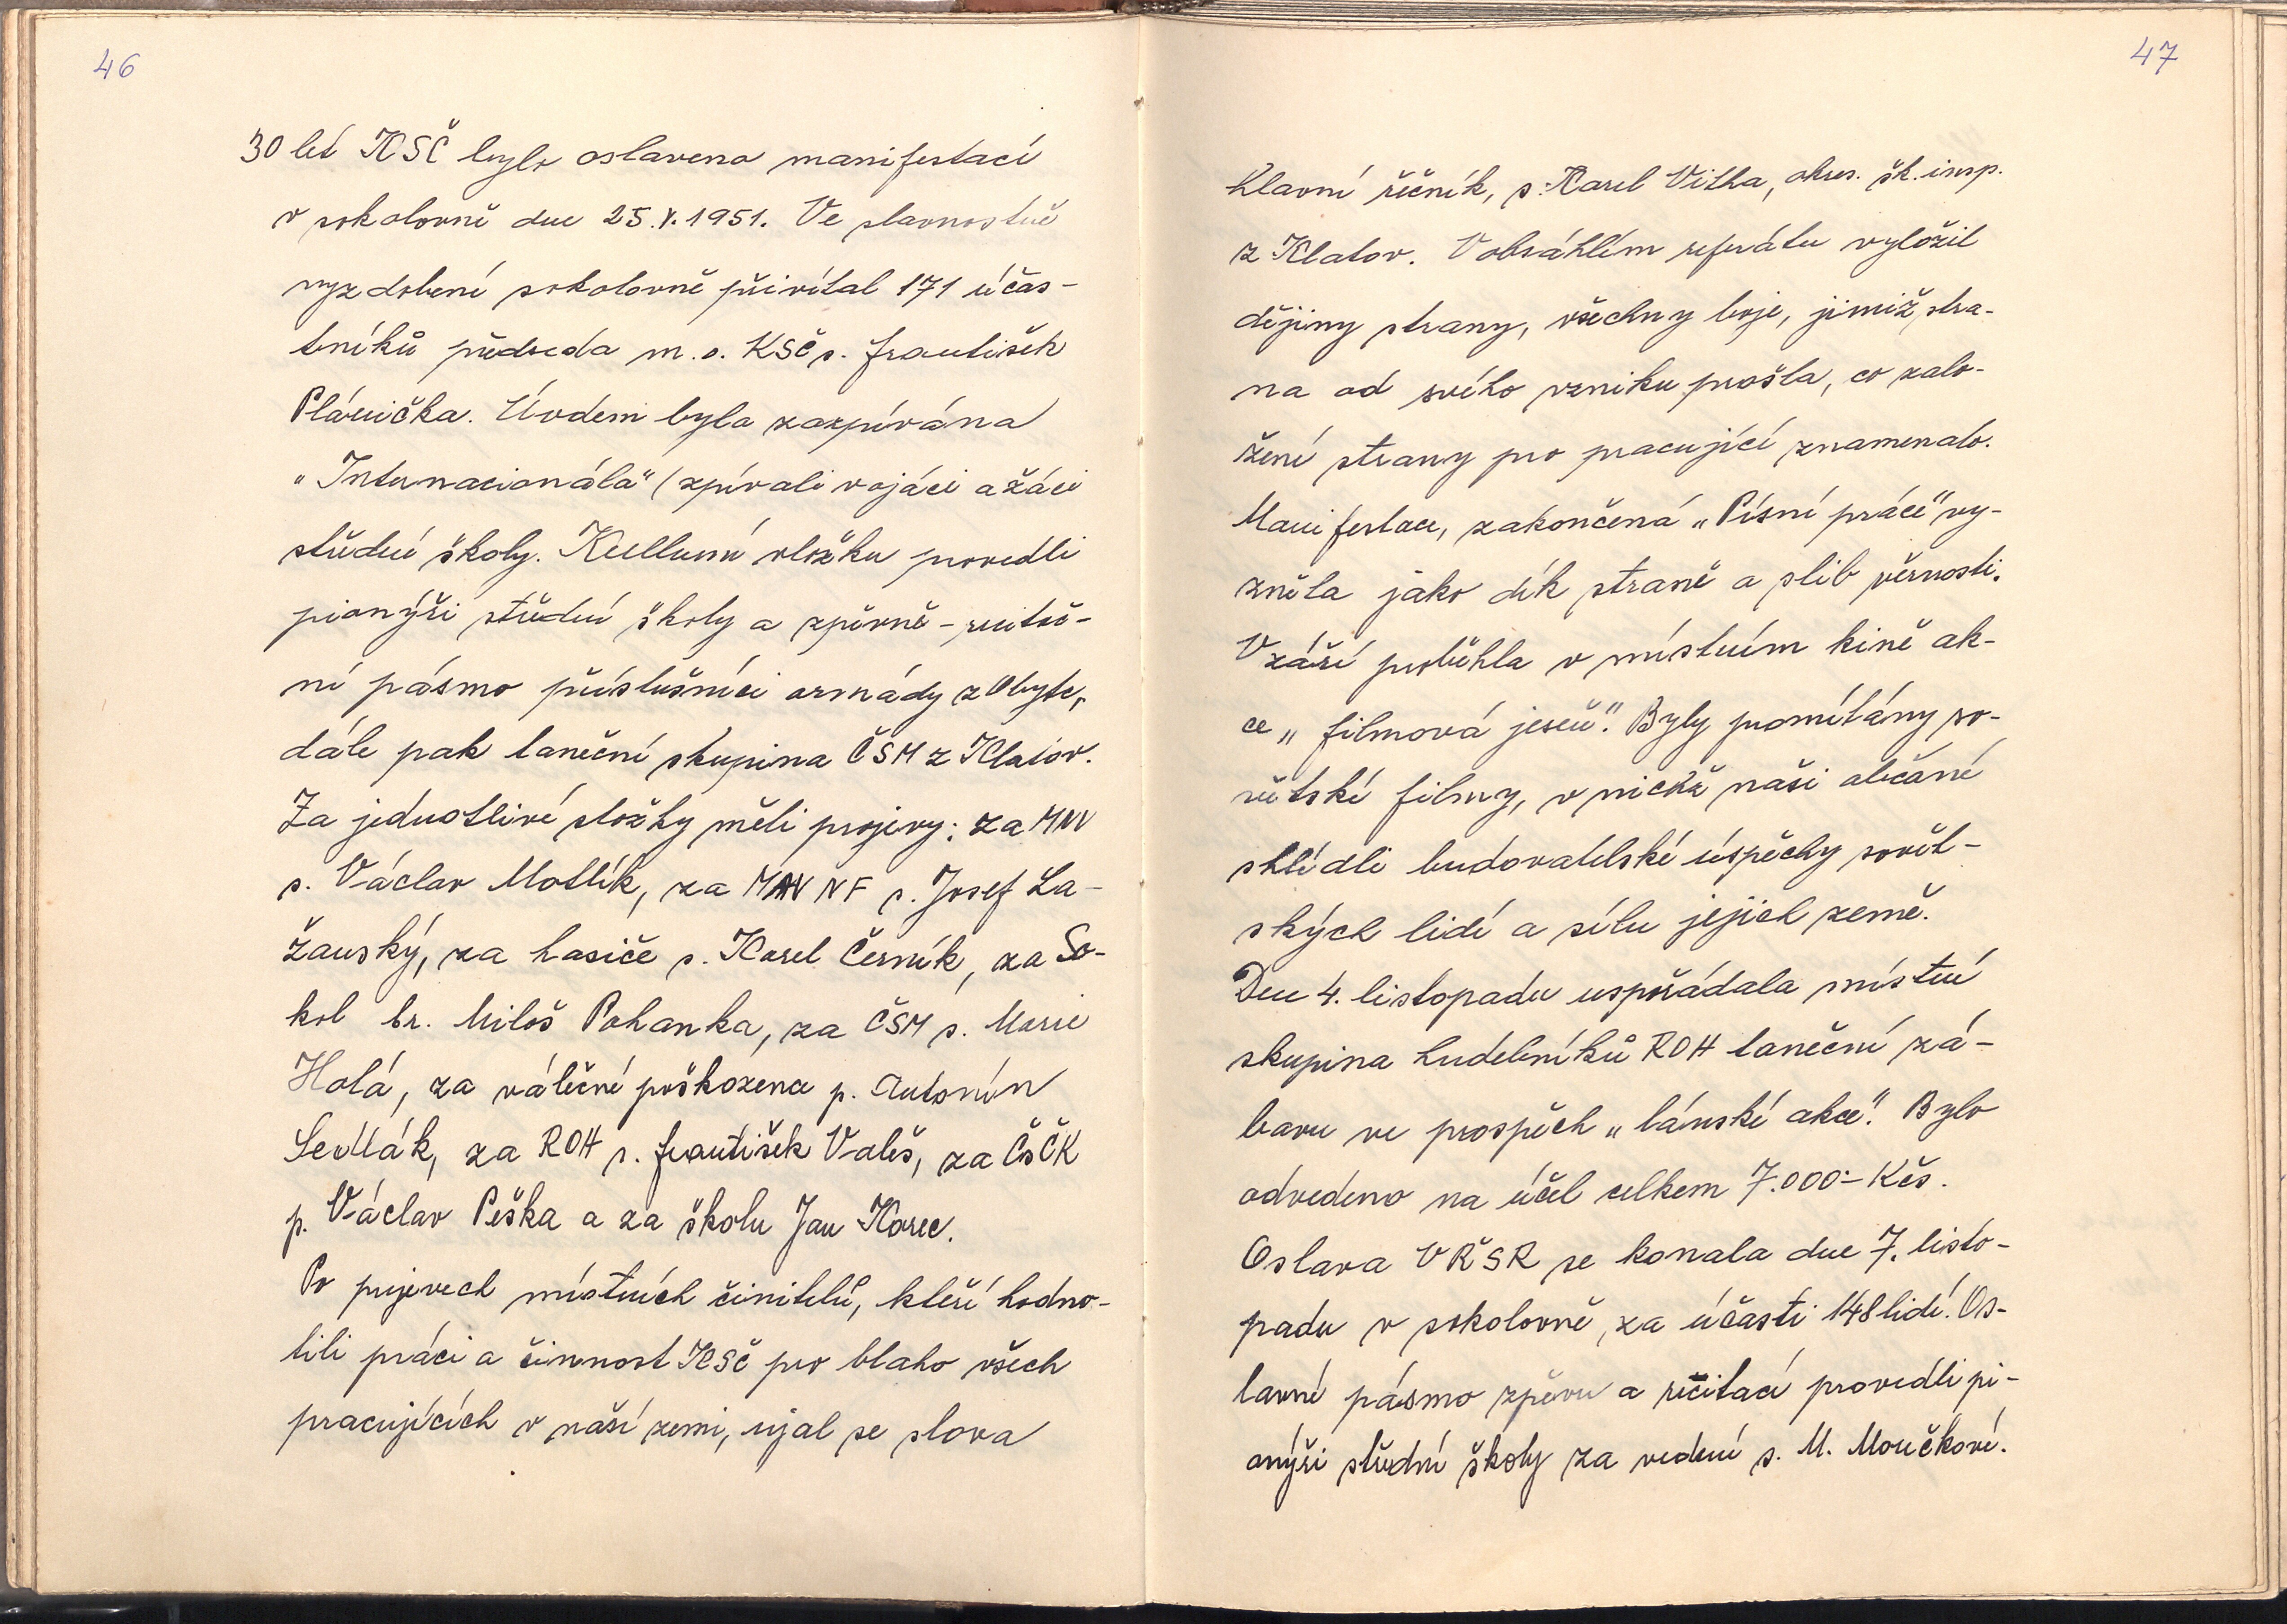 46
30 let KSČ bylo oslaveno manifestací
v sokolovně dne 25.V.1951. Ve slavnostně
vyzdobené sokolovně přivítal 171 účas-
tníků předseda m.o. KSČ s. František
Plánička. Úvodem byla zazpívána
„Internacionála" (zpívali vojáci a žáci
střední školy. Kulturní vložku provedli
pionýři střední školy a zpěvně-recitač-
ní pásmo příslušníci armády z Obytc,
dále pak taneční skupina ČSM z Klatov.
Za jednotlivé složky měli projevy: za MNV
s. Václav Motlík, za MAV NF s. Josef La-
žanský, za hasiče s. Karel Černík, za So-
kol br. Miloš Pohanka, za ČSM s. Marie
Holá, za válečné poškozence p. Antonín
Sedlák, za ROH s. František Valeš, za ČsČK
p. Václav Peška a za školu Jan Korec.
Po projevech místních činitelů, kteří hodno-
tili práci a činnost KSČ pro blaho všech
pracujících v naší zemi, ujal se slova
47
hlavní řečník, s. Karel Vítha, okres. šk. insp.
z Klatov. V obsáhlém referátu vyložil
dějiny strany, všechny boje, jimiž stra-
na od svého vzniku prošla, co zalo-
žení strany pro pracující znamenalo.
Manifestace, zakončená „Písní práce" vy-
zněla jako dík straně a slib věrnosti.
V září proběhla v místním kině ak-
ce „filmová jeseň". Byly promítány so-
větské filmy, v nichž naši občané
shlédli budovatelské úspěchy sovět-
ských lidí a sílu jejich země.
Dne 4. listopadu uspořádala místní
skupina hudebníků ROH taneční zá-
bavu ve prospěch „lánské akce". Bylo
odvedeno na účel celkem 7.000.- Kčs.
Oslava VŘSR se konala dne 7. listo-
padu v sokolovně, za účasti 148 lidí. Os-
lavné pásmo zpěvu a recitací provedli pi-
onýři střední školy za vedení s. M. Moučkové.